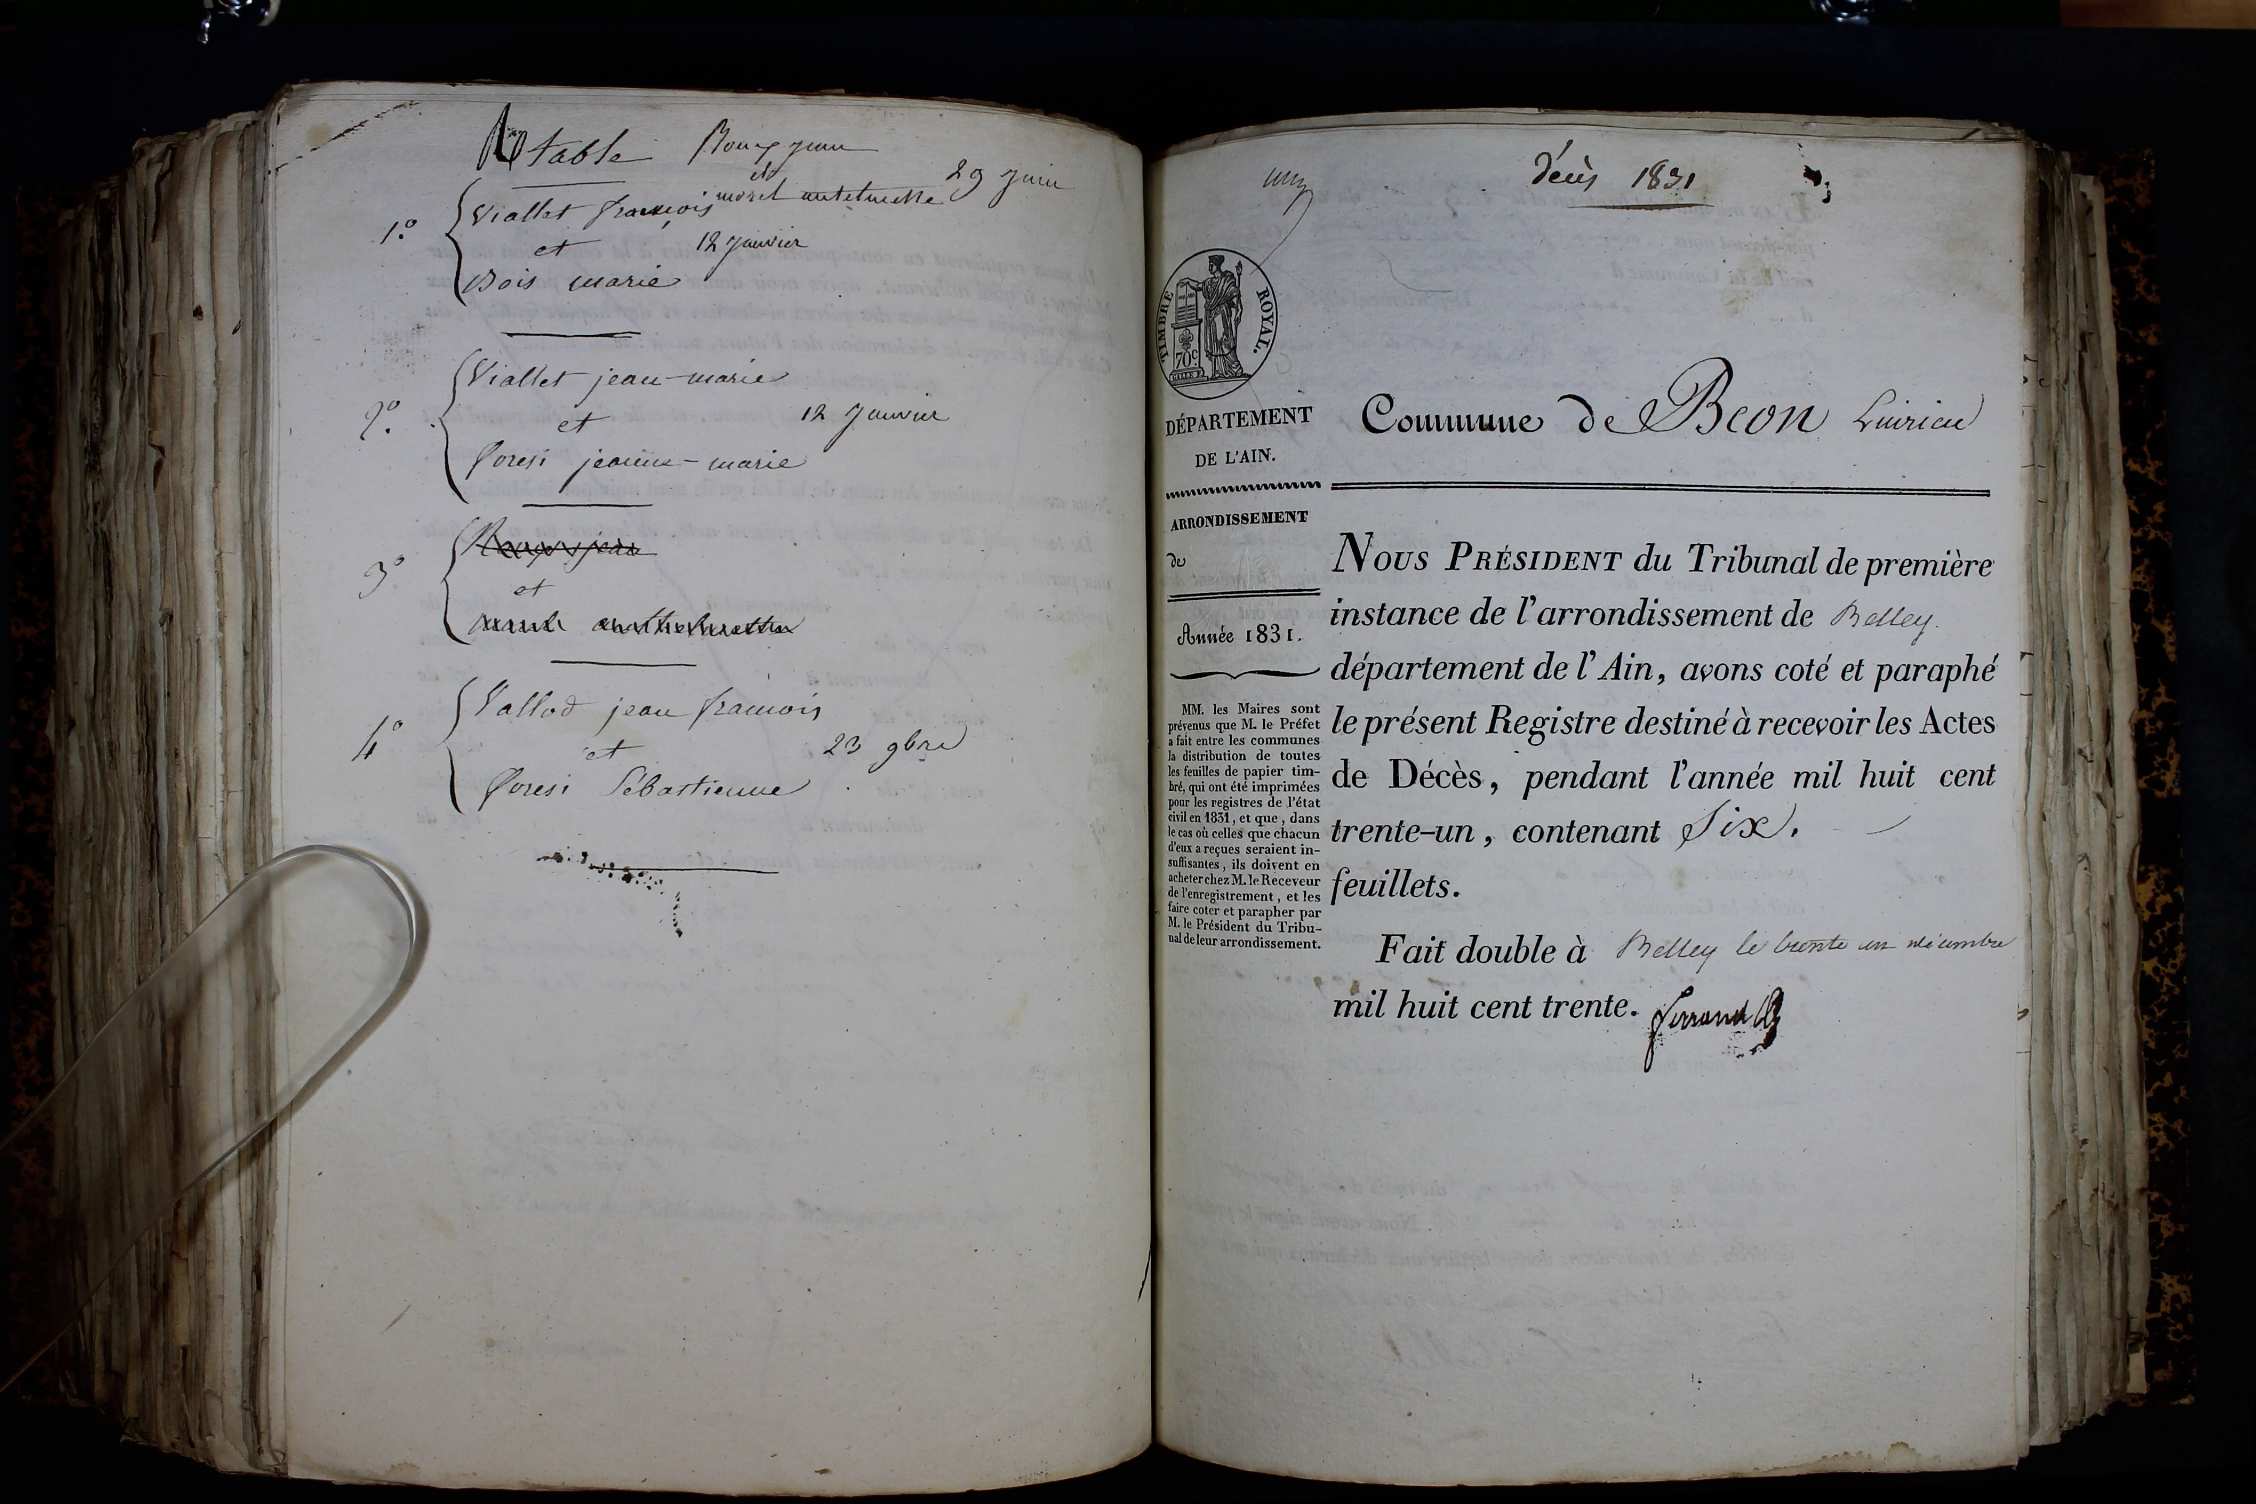 table Roux jean
et
morel anthelmette 29 juin
1.° Viallet françois
et 12 janvier
Bois marie
2.° Viallet jean-marie
et 12 janvier
Goresi jeanne-marie
3°
et
4° Vallod jean françois
et 23 9bre
Goresi Sébastienne
un
décès 1831
TIMBRE ROYAL.
70c
DÉPARTEMENT
DE L'AIN.
ARRONDISSEMENT
de
Année 1831.
MM. les Maires sont
prévenus que M. le Préfet
a fait entre les communes
la distribution de toutes
les feuilles de papier tim-
bré, qui ont été imprimées
pour les registres de l'état
civil en 1831, et que, dans
le cas où celles que chacun
d'eux a reçues seraient in-
suffisantes, ils doivent en
acheter chez M. le Receveur
de l'enregistrement, et les
faire coter et parapher par
M. le Président du Tribu-
nal de leur arrondissement.
Commune de Beon Luirieu
NOUS PRÉSIDENT du Tribunal de première
instance de l'arrondissement de Belley.
département de l'Ain, avons coté et paraphé
le présent Registre destiné à recevoir les Actes
de Décès, pendant l'année mil huit cent
trente-un, contenant Six.
feuillets.
Fait double à Belley le trente un décembre
mil huit cent trente.